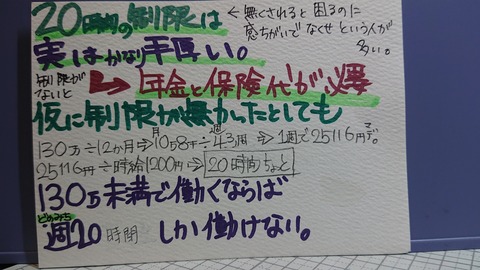 20時間の制限は
←無くされると困るのに
感ちがいでなくせという人が
多い。
実はかなり手厚い。
制限が
ないと
年金と保険代が必要
仮に制限が無かったとしても
130万÷12か月⇒月10万8千÷週4.3周⇒1週で25116円マデ。
25116円÷時給1200円⇒20時間ちょっと
130万未満で働くならば
どのみち
週20時間 しか働けない。